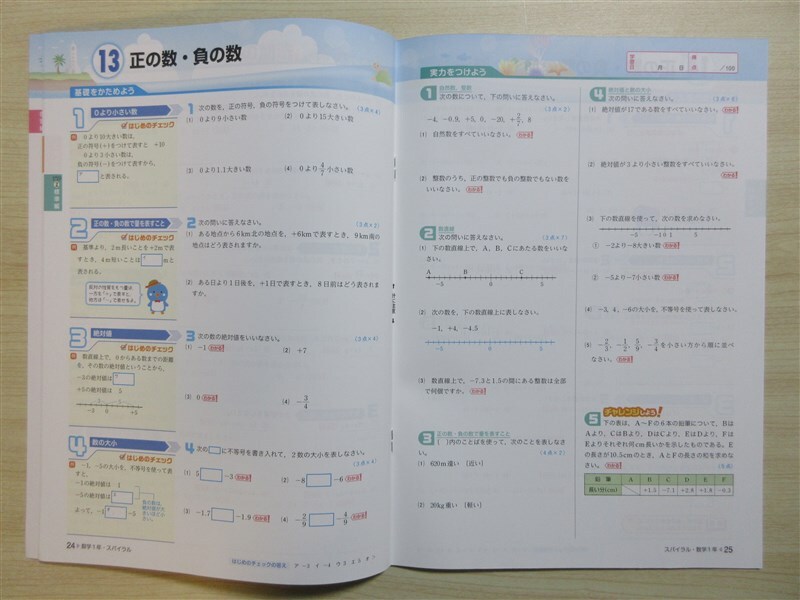 13 正の数・負の数
基礎をかためよう
1 0より小さい数
はじめのチェック
0より10大きい数は,
正の符号(+)をつけて表すと +10
0より3小さい数は,
負の符号(-)をつけて表すから,
と表される。
1 次の数を, 正の符号, 負の符号をつけて表しなさい。
(1) 0より9小さい数
(2) 0より15大きい数
(3) 0より1.1大きい数
(4) 0より4/7小さい数
2 正の数・負の数で量を表すこと
はじめのチェック
基準より, 2m長いことを+2mで表
すとき, 4m短いことは m と
表される。
2 次の問いに答えなさい。
(1) ある地点から6km北の地点を, +6kmで表すとき, 9km南の
地点はどう表されますか。
(2) ある日より1日後を, +1日で表すとき, 8日前はどう表されま
すか。
3 絶対値
はじめのチェック
数直線上で, 0からある数までの距離
を, その数の絶対値ということから,
-3の絶対値は
+5の絶対値は 5
3 次の数の絶対値をいいなさい。
(1) -1
(2) +7
(3) 0
(4) -3/4
4 数の大小
はじめのチェック
-1, -5の大小を, 不等号を使って表
すと,
-1の絶対値は 1
-5の絶対値は
よって, -1 -5
4 次の に不等号を書き入れて, 2数の大小を表しなさい。
(1) 5 -3
(2) -8 -6
(3) -1.7 -1.9
(4) -2/9 -4/9
24 数学1年・スパイラル
はじめのチェックの答え
実力をつけよう
月 日
/100
1 自然数, 整数
次の数について, 下の問いに答えなさい。
-4, -0.9, +5, 0, -20, +2/3, 8
(1) 自然数をすべていいなさい。
(2) 整数のうち, 正の整数でも負の整数でもない数を
いいなさい。
2 数直線
次の問いに答えなさい。
(1) 下の数直線上で, A, B, Cにあたる数をいいな
さい。
A B C
-5 0 +5
(2) 次の数を, 下の数直線上に表しなさい。
-1, +4, -4.5
-5 0 +5
(3) 数直線上で, -7.3と1.5の間にある整数は全部
で何個ですか。
3 正の数・負の数で量を表すこと
〔 〕内のことばを使って, 次のことを表しなさ
い。
(1) 620m遠い 〔近い〕
(2) 20kg重い 〔軽い〕
4 絶対値と数の大小
次の問いに答えなさい。
(1) 絶対値が17である数をすべていいなさい。
(2) 絶対値が3より小さい整数をすべていいなさい。
(3) 下の数直線を使って, 次の数を求めなさい。
-5 -1 0 +1 +5
① -2より-8大きい数
② -5より-7小さい数
(4) -3, 4, -6の大小を, 不等号を使って表しなさい。
(5) -2/3, -1/2, 5/9, -3/4を小さい方から順に並べ
なさい。
チャレンジしよう!
5 下の表は, A~Fの6本の鉛筆について, Bは
Aより, CはBより, DはCより, EはDより, Fは
Eよりそれぞれ何cm長いかを示したものである。E
の長さが10.5cmのとき, AとFの長さの和を求めな
さい。
鉛筆 A B C D E F
長い分(cm) +1.5 -7.1 +2.8 +1.8 -0.5
スパイラル・数学1年 25